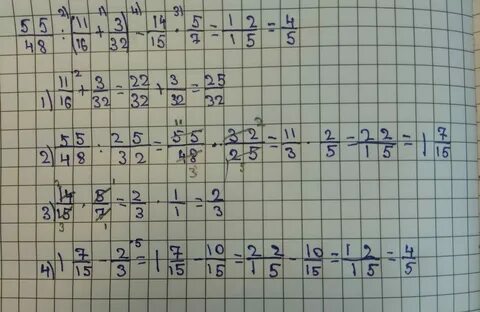 55/48 : (11/16 + 3/32) - 14/15 · 5/7 = 12/15 = 4/5
1) 11/16 + 3/32 = 22/32 + 3/32 = 25/32
2) 55/48 : 25/32 = 55/48 · 32/25 = 11/3 · 2/5 = 22/15 = 1 7/15
3) 14/15 · 5/7 = 2/3 · 1/1 = 2/3
4) 1 7/15 - 2/3 = 1 7/15 - 10/15 = 22/15 - 10/15 = 12/15 = 4/5